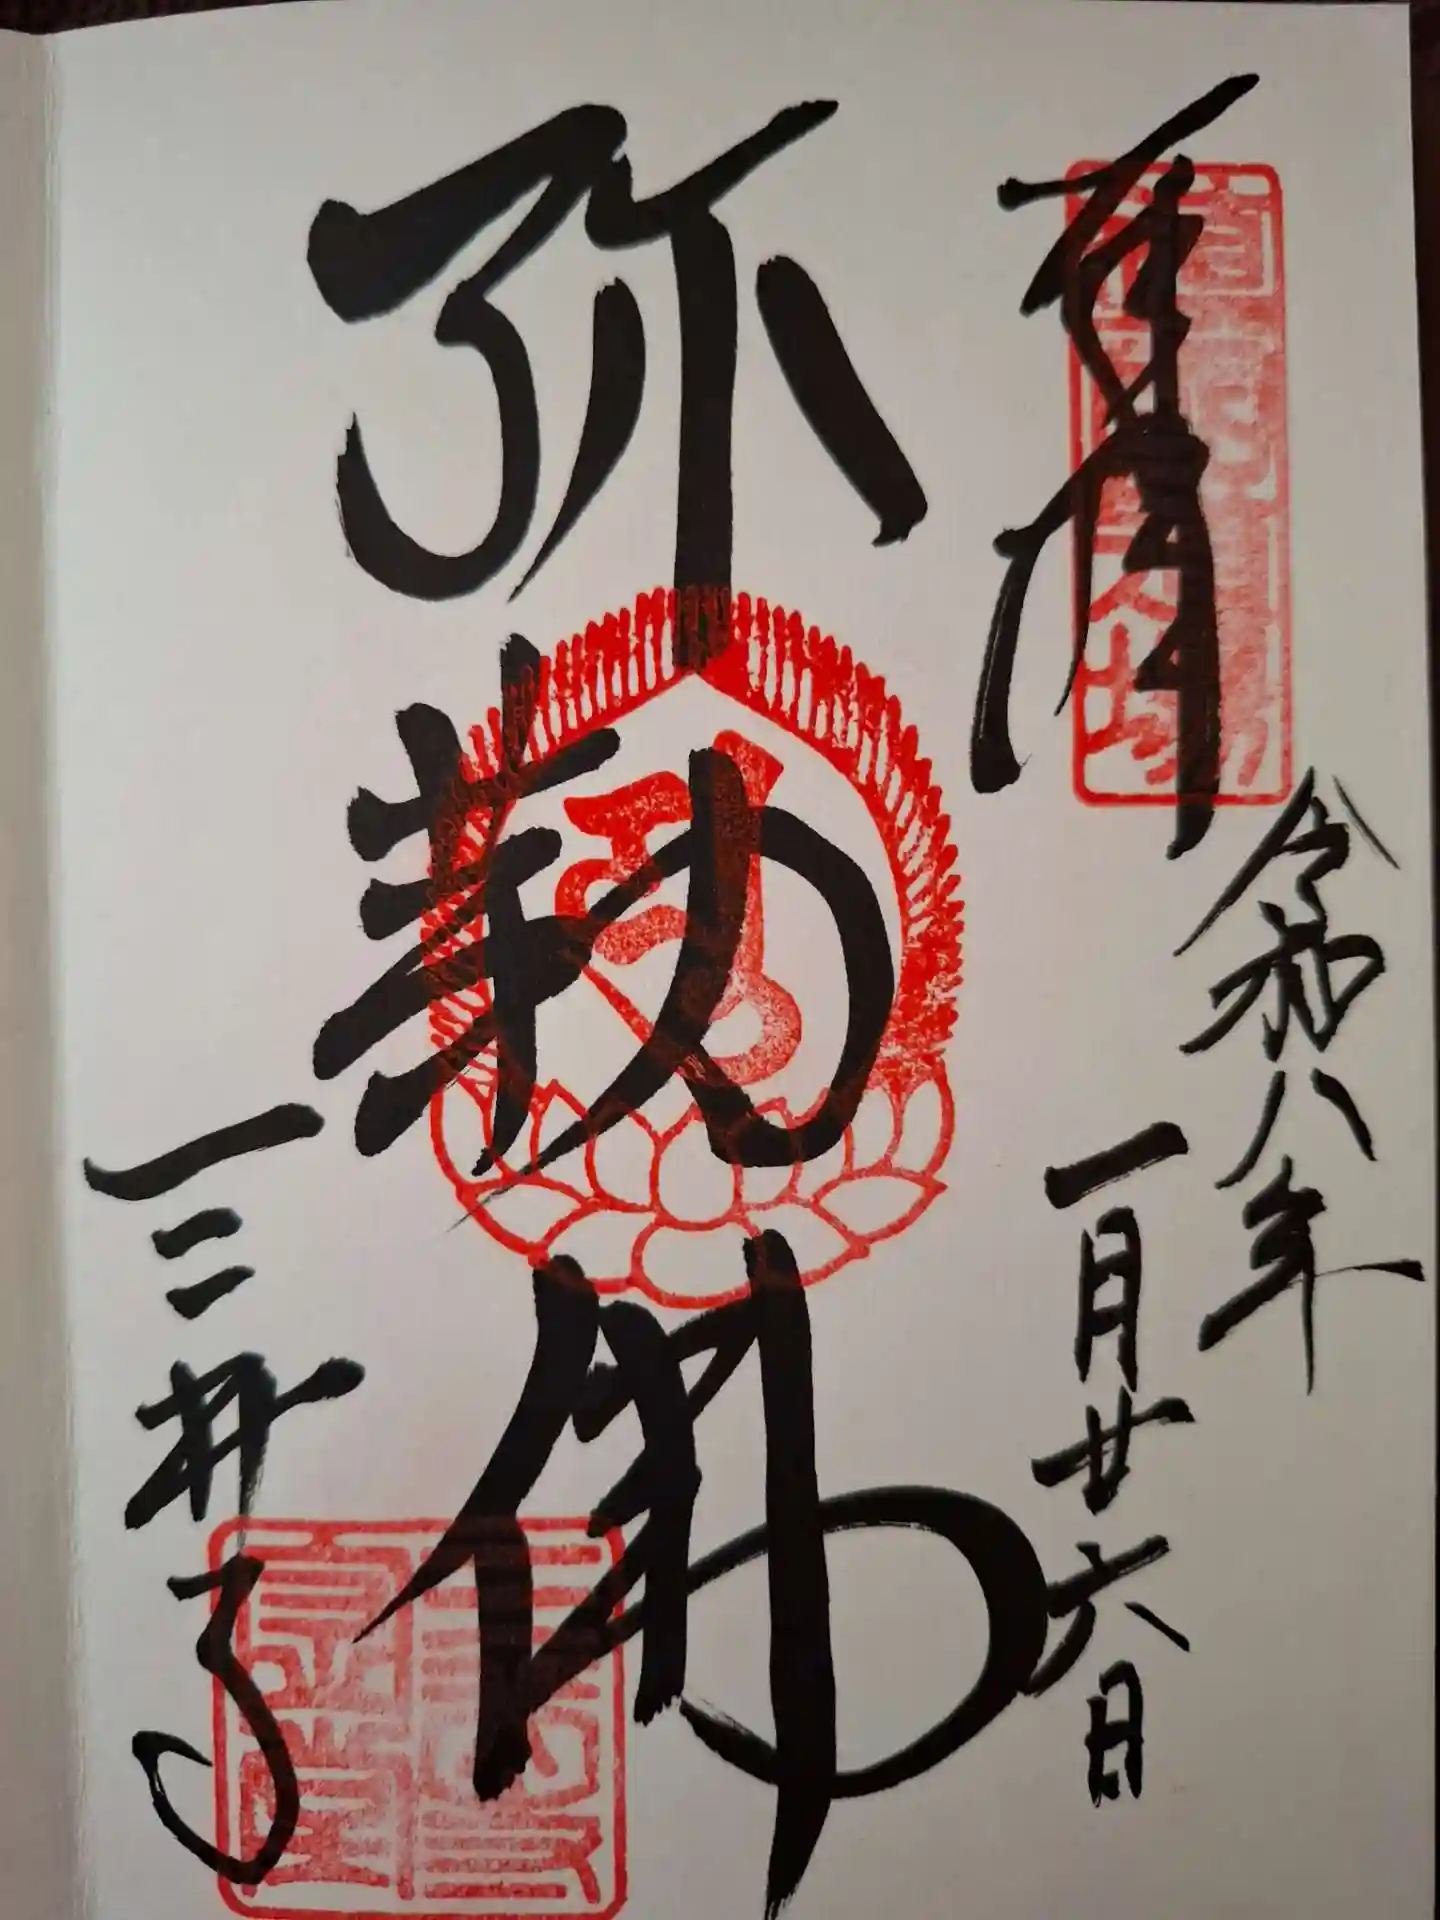 奉拝
令和八年
一月廿六日
弥勒佛
三井寺